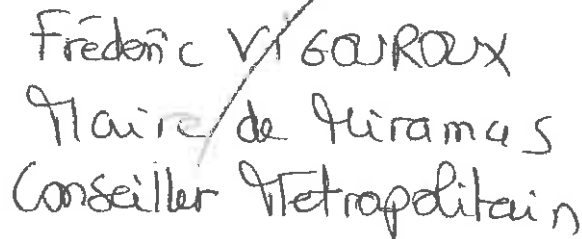 Frédéric VIGOUROUX
Maire de Miramas
Conseiller Metropolitain